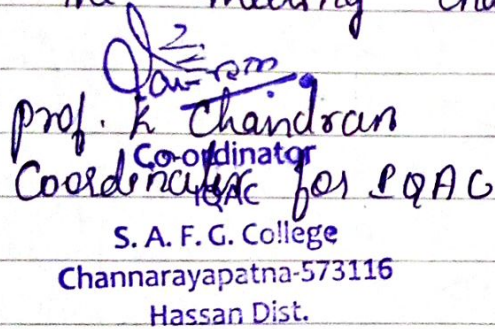 the meeting
Prof. K Chandran
Co-ordinator
Coordinator for IQAC
IQAC
S. A. F. G. College
Channarayapatna-573116
Hassan Dist.